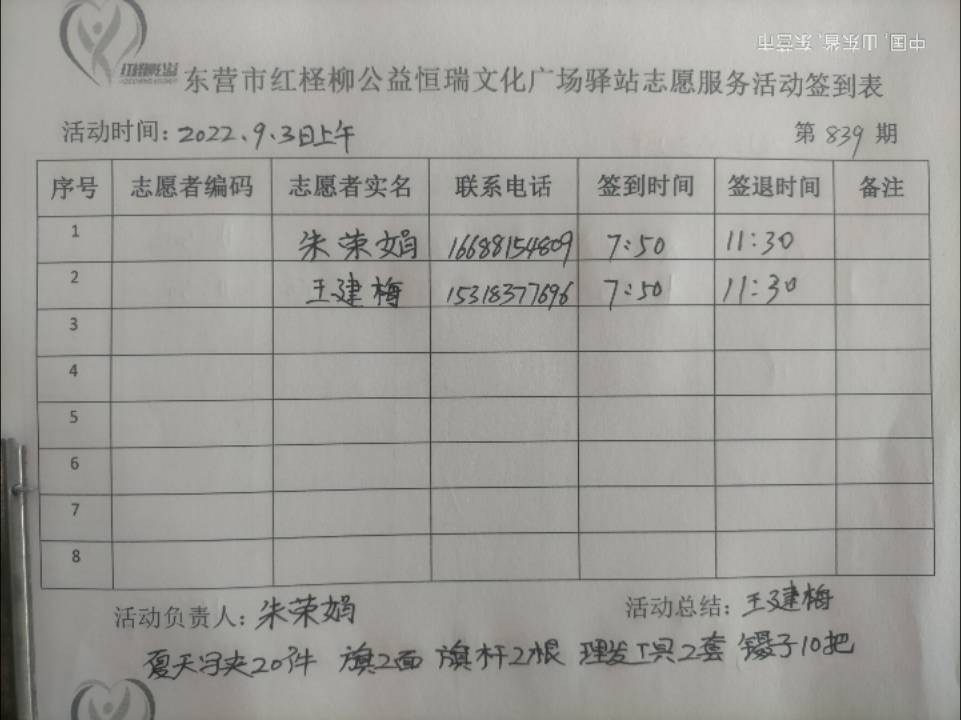 中国, 山东省, 东营市
东营市红柽柳公益恒瑞文化广场驿站志愿服务活动签到表
活动时间: 2022.9.3日上午 第 839 期
序号 志愿者编码 志愿者实名 联系电话 签到时间 签退时间 备注
1 朱荣娟 16688154809 7:50 11:30
2 王建梅 15318377696 7:50 11:30
3
4
5
6
7
8
活动负责人: 朱荣娟 活动总结: 王建梅
夏天马夹20件 旗2面 旗杆2根 理发工具2套 镊子10把